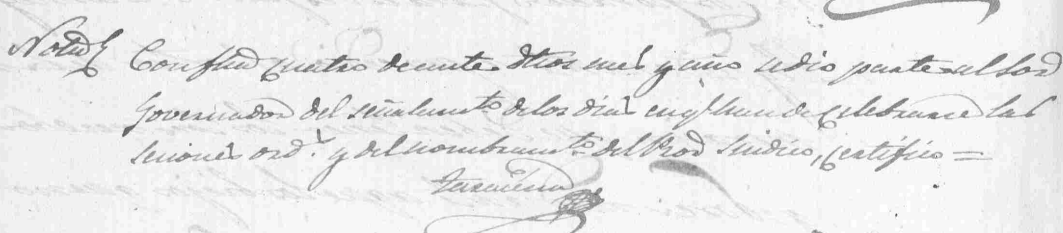 Nota Con fha cuatro de este dhos mes y año se dio parte al Sor
Governador del señalamto de los dias en q han de celebrarse las
seciones ords y del nombramto del Pror Sindico, certifico =